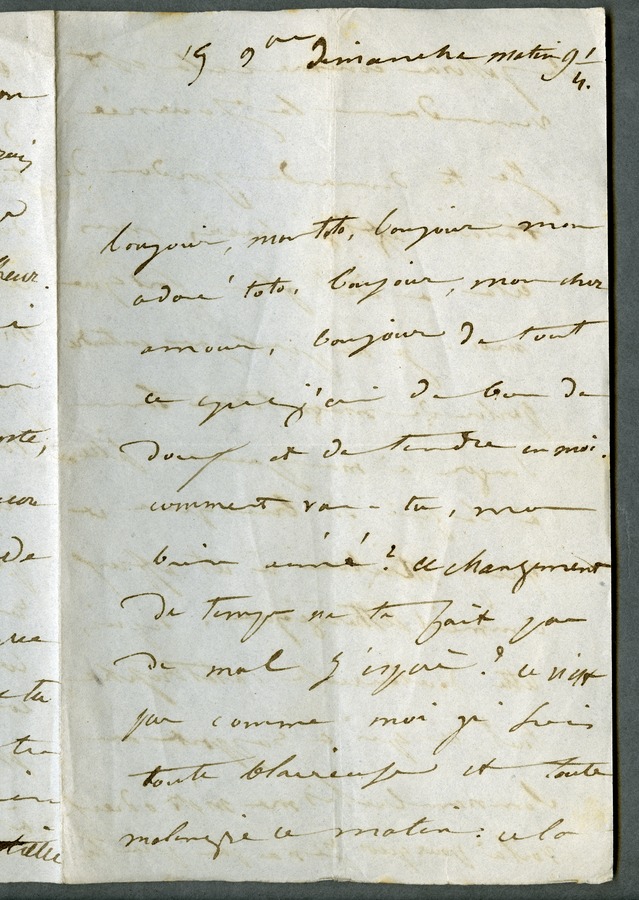 15 9bre dimanche matin 9 1/4.
Bonjour, mon Toto, bonjour mon
adoré Toto, bonjour, mon cher
amour, bonjour de tout
ce que j'ai de bon de
doux et de tendre en moi.
comment vas-tu, mon
bien aimé? ce changement
de temps ne te fait pas
de mal j'espère? ce n'est
pas comme moi qui suis
toute
et toute
ce matin: cela
heur.
de
tu